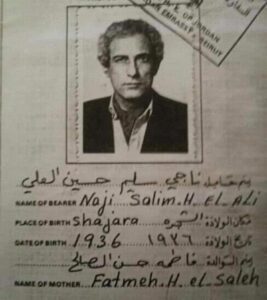 OF JORDAN
EMBASSY BEIRUT
ناجي سليم حسين العلي
NAME OF BEARER Naji Salim. H. EL ALi
PLACE OF BIRTH Shajara الشجرة مكان الولادة
DATE OF BIRTH 1936 ١٩٣٦ تاريخ الولادة
فاطمه حسن الصالح
NAME OF MOTHER Fatmeh. H. el Saleh